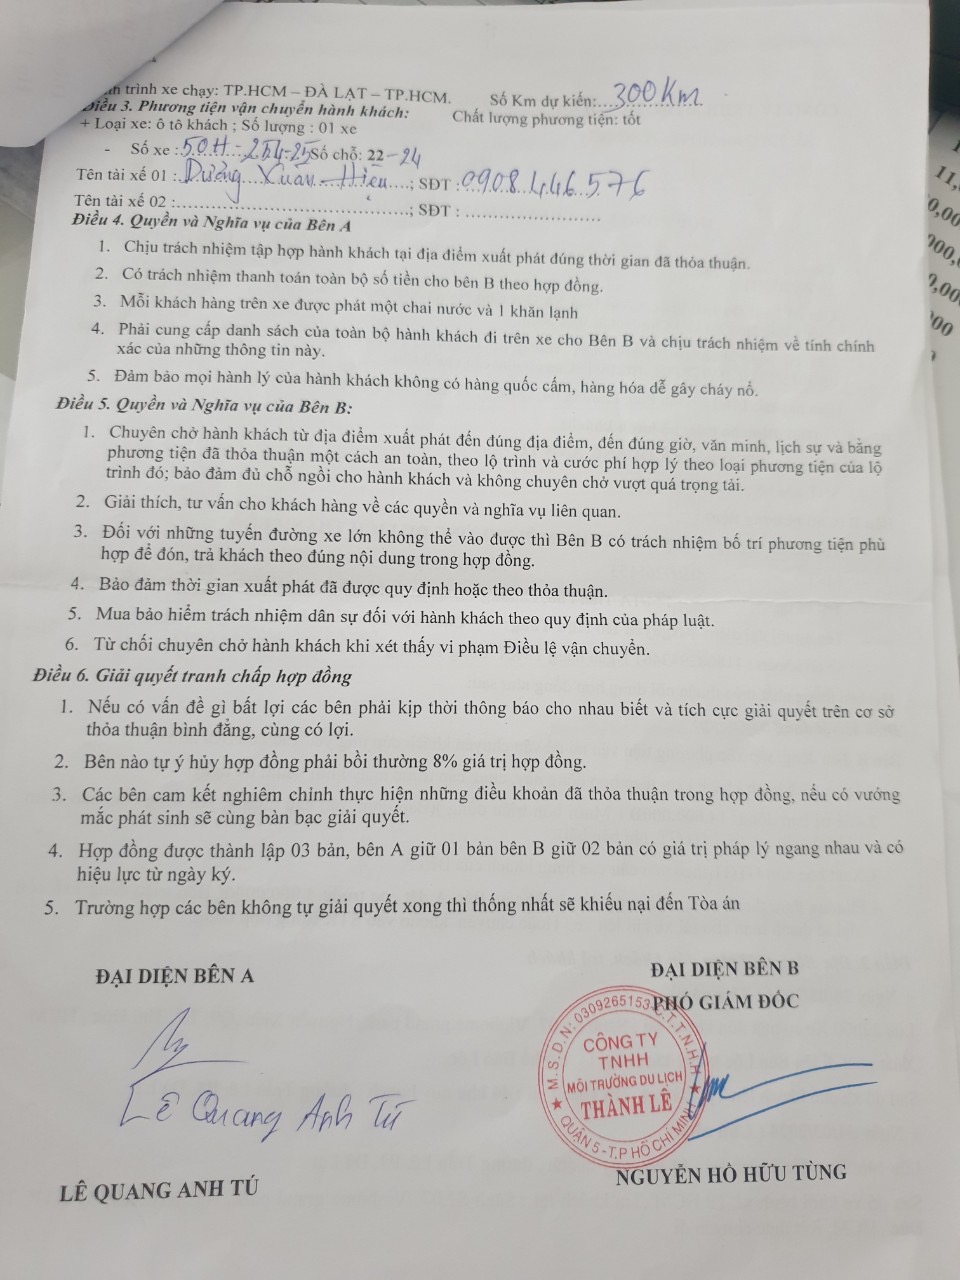 trình xe chạy: TP.HCM – ĐÀ LẠT – TP.HCM. Số Km dự kiến:...300Km
Điều 3. Phương tiện vận chuyển hành khách: Chất lượng phương tiện: tốt
+ Loại xe: ô tô khách ; Số lượng : 01 xe
- Số xe :50H-254-25 Số chỗ: 22-24
Tên tài xế 01 :..Dương Xuân Hiếu....; SĐT :0908.446.576
Tên tài xế 02 :..............................................; SĐT : ...........................
Điều 4. Quyền và Nghĩa vụ của Bên A
1. Chịu trách nhiệm tập hợp hành khách tại địa điểm xuất phát đúng thời gian đã thỏa thuận.
2. Có trách nhiệm thanh toán toàn bộ số tiền cho bên B theo hợp đồng.
3. Mỗi khách hàng trên xe được phát một chai nước và 1 khăn lạnh
4. Phải cung cấp danh sách của toàn bộ hành khách đi trên xe cho Bên B và chịu trách nhiệm về tính chính
xác của những thông tin này.
5. Đảm bảo mọi hành lý của hành khách không có hàng quốc cấm, hàng hóa dễ gây cháy nổ.
Điều 5. Quyền và Nghĩa vụ của Bên B:
1. Chuyên chở hành khách từ địa điểm xuất phát đến đúng địa điểm, đến đúng giờ, văn minh, lịch sự và bằng
phương tiện đã thỏa thuận một cách an toàn, theo lộ trình và cước phí hợp lý theo loại phương tiện của lộ
trình đó; bảo đảm đủ chỗ ngồi cho hành khách và không chuyên chở vượt quá trọng tải.
2. Giải thích, tư vấn cho khách hàng về các quyền và nghĩa vụ liên quan.
3. Đối với những tuyến đường xe lớn không thể vào được thì Bên B có trách nhiệm bố trí phương tiện phù
hợp để đón, trả khách theo đúng nội dung trong hợp đồng.
4. Bảo đảm thời gian xuất phát đã được quy định hoặc theo thỏa thuận.
5. Mua bảo hiểm trách nhiệm dân sự đối với hành khách theo quy định của pháp luật.
6. Từ chối chuyên chở hành khách khi xét thấy vi phạm Điều lệ vận chuyển.
Điều 6. Giải quyết tranh chấp hợp đồng
1. Nếu có vấn đề gì bất lợi các bên phải kịp thời thông báo cho nhau biết và tích cực giải quyết trên cơ sở
thỏa thuận bình đẳng, cùng có lợi.
2. Bên nào tự ý hủy hợp đồng phải bồi thường 8% giá trị hợp đồng.
3. Các bên cam kết nghiêm chỉnh thực hiện những điều khoản đã thỏa thuận trong hợp đồng, nếu có vướng
mắc phát sinh sẽ cùng bàn bạc giải quyết.
4. Hợp đồng được thành lập 03 bản, bên A giữ 01 bản bên B giữ 02 bản có giá trị pháp lý ngang nhau và có
hiệu lực từ ngày ký.
5. Trường hợp các bên không tự giải quyết xong thì thống nhất sẽ khiếu nại đến Tòa án
ĐẠI DIỆN BÊN A
ĐẠI DIỆN BÊN B
PHÓ GIÁM ĐỐC
M.S.D.N: 0309265153 C.T.T.N.H.H
CÔNG TY
TNHH
MÔI TRƯỜNG DU LỊCH
THÀNH LÊ
QUẬN 5 - T.P HỒ CHÍ MINH
Lê Quang Anh Tú
LÊ QUANG ANH TÚ
NGUYỄN HỒ HỮU TÙNG